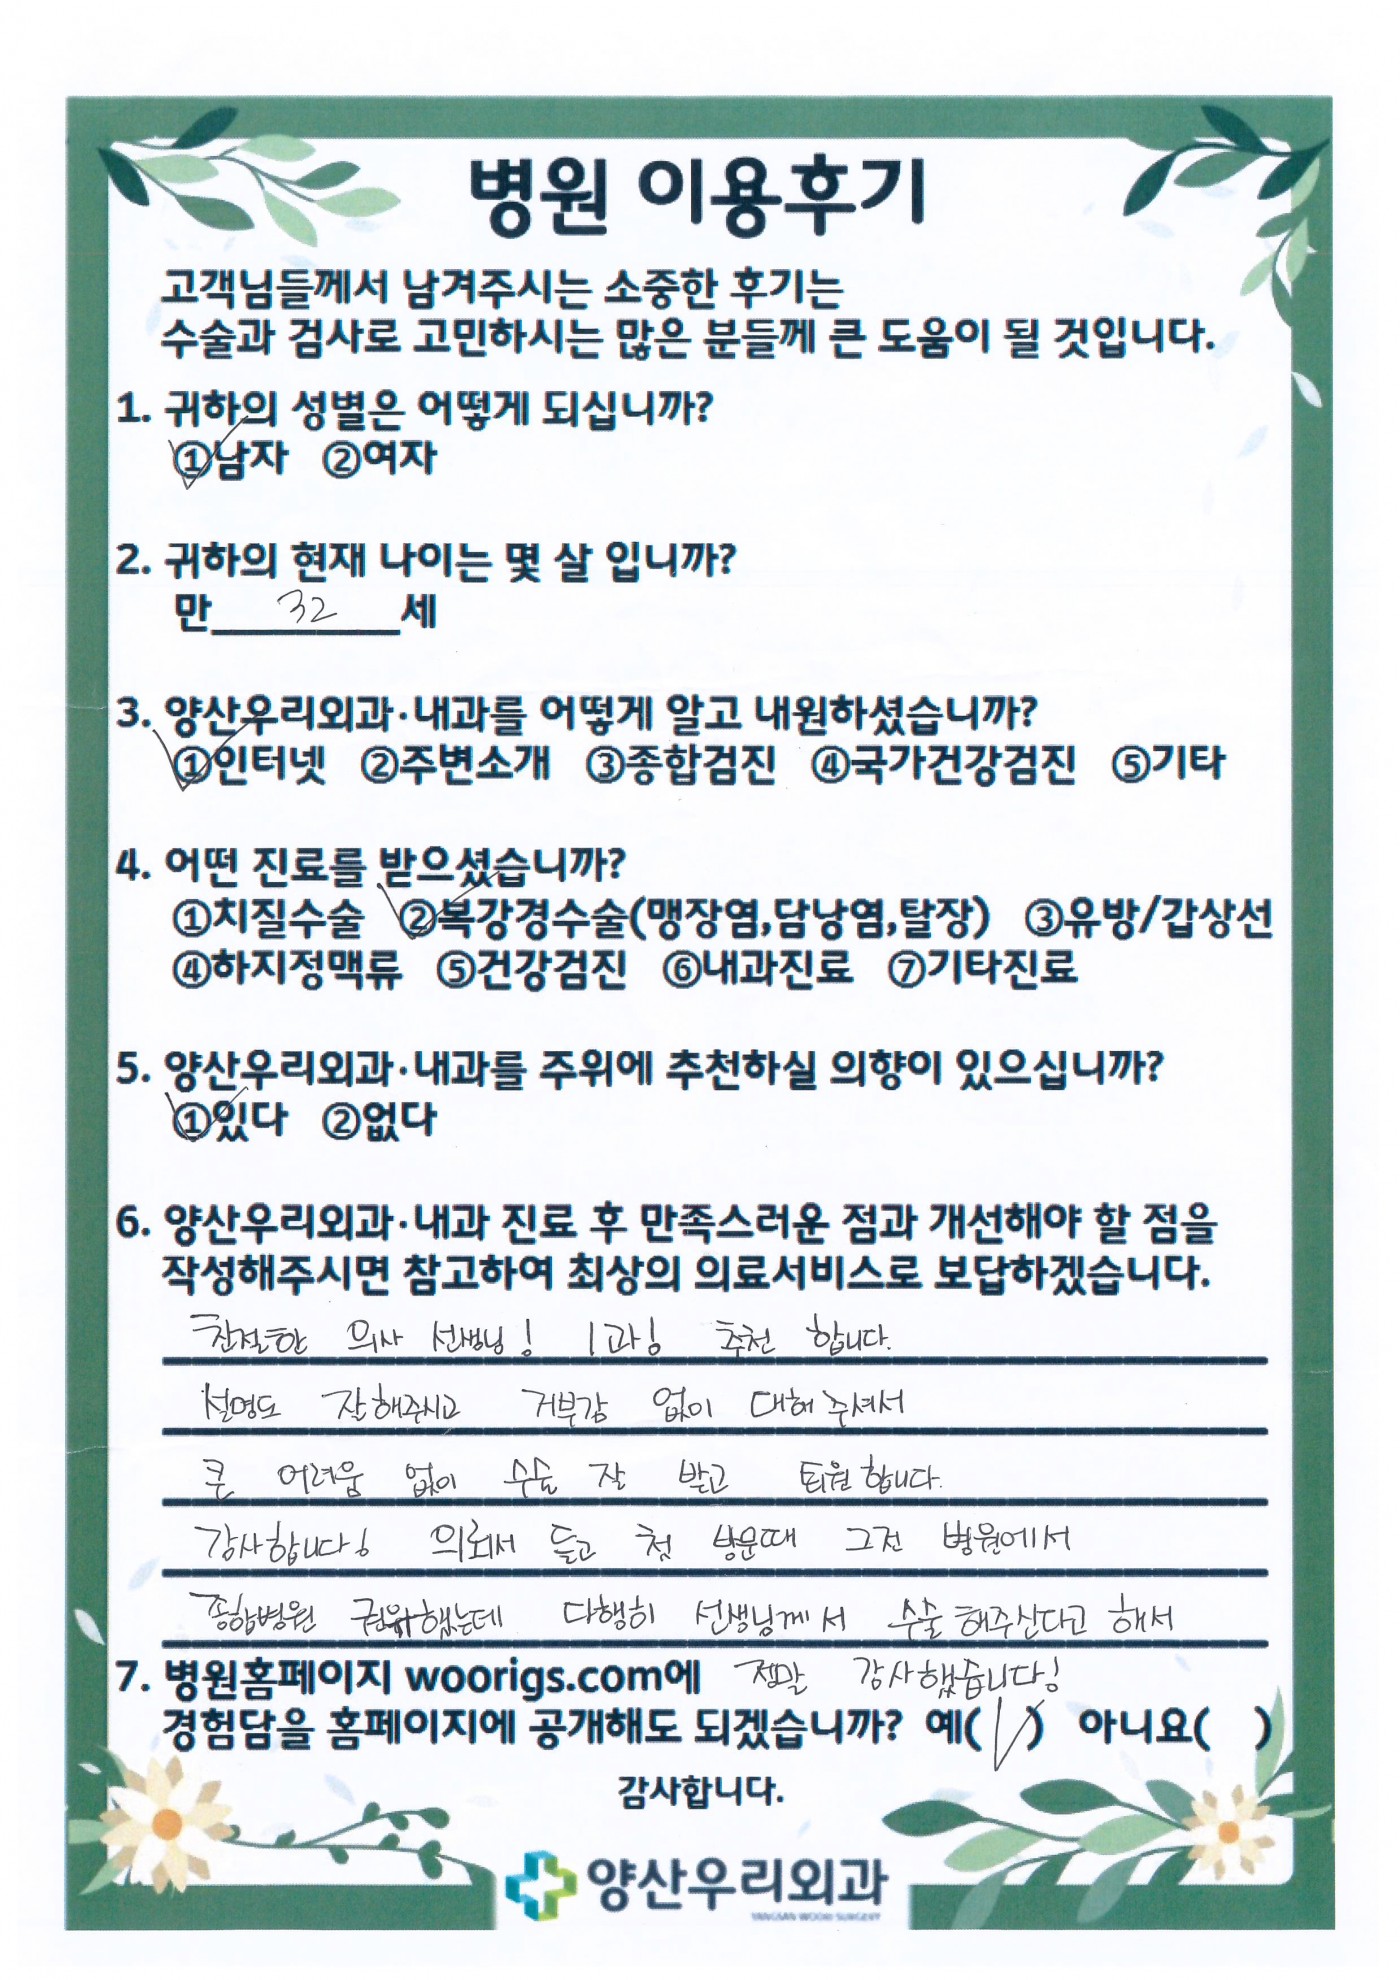 병원 이용후기
고객님들께서 남겨주시는 소중한 후기는
수술과 검사로 고민하시는 많은 분들께 큰 도움이 될 것입니다.
1. 귀하의 성별은 어떻게 되십니까?
①남자 ②여자
2. 귀하의 현재 나이는 몇 살 입니까?
만 32 세
3. 양산우리외과·내과를 어떻게 알고 내원하셨습니까?
①인터넷 ②주변소개 ③종합검진 ④국가건강검진 ⑤기타
4. 어떤 진료를 받으셨습니까?
①치질수술 ②복강경수술(맹장염,담낭염,탈장) ③유방/갑상선
④하지정맥류 ⑤건강검진 ⑥내과진료 ⑦기타진료
5. 양산우리외과·내과를 주위에 추천하실 의향이 있으십니까?
①있다 ②없다
6. 양산우리외과·내과 진료 후 만족스러운 점과 개선해야 할 점을
작성해주시면 참고하여 최상의 의료서비스로 보답하겠습니다.
친절한 의사 선생님! 1과! 추천 합니다.
설명도 잘해주시고 거부감 없이 대해주셔서
큰 어려움 없이 수술 잘 받고 퇴원합니다.
감사합니다! 의뢰서 들고 첫 방문때 그전 병원에서
종합병원 권유했는데 다행히 선생님께서 수술해주신다고 해서
정말 감사했습니다!
7. 병원홈페이지 woorigs.com에
경험담을 홈페이지에 공개해도 되겠습니까? 예(✓) 아니요( )
감사합니다.
양산우리외과
YANGSAN WOORI SURGERY